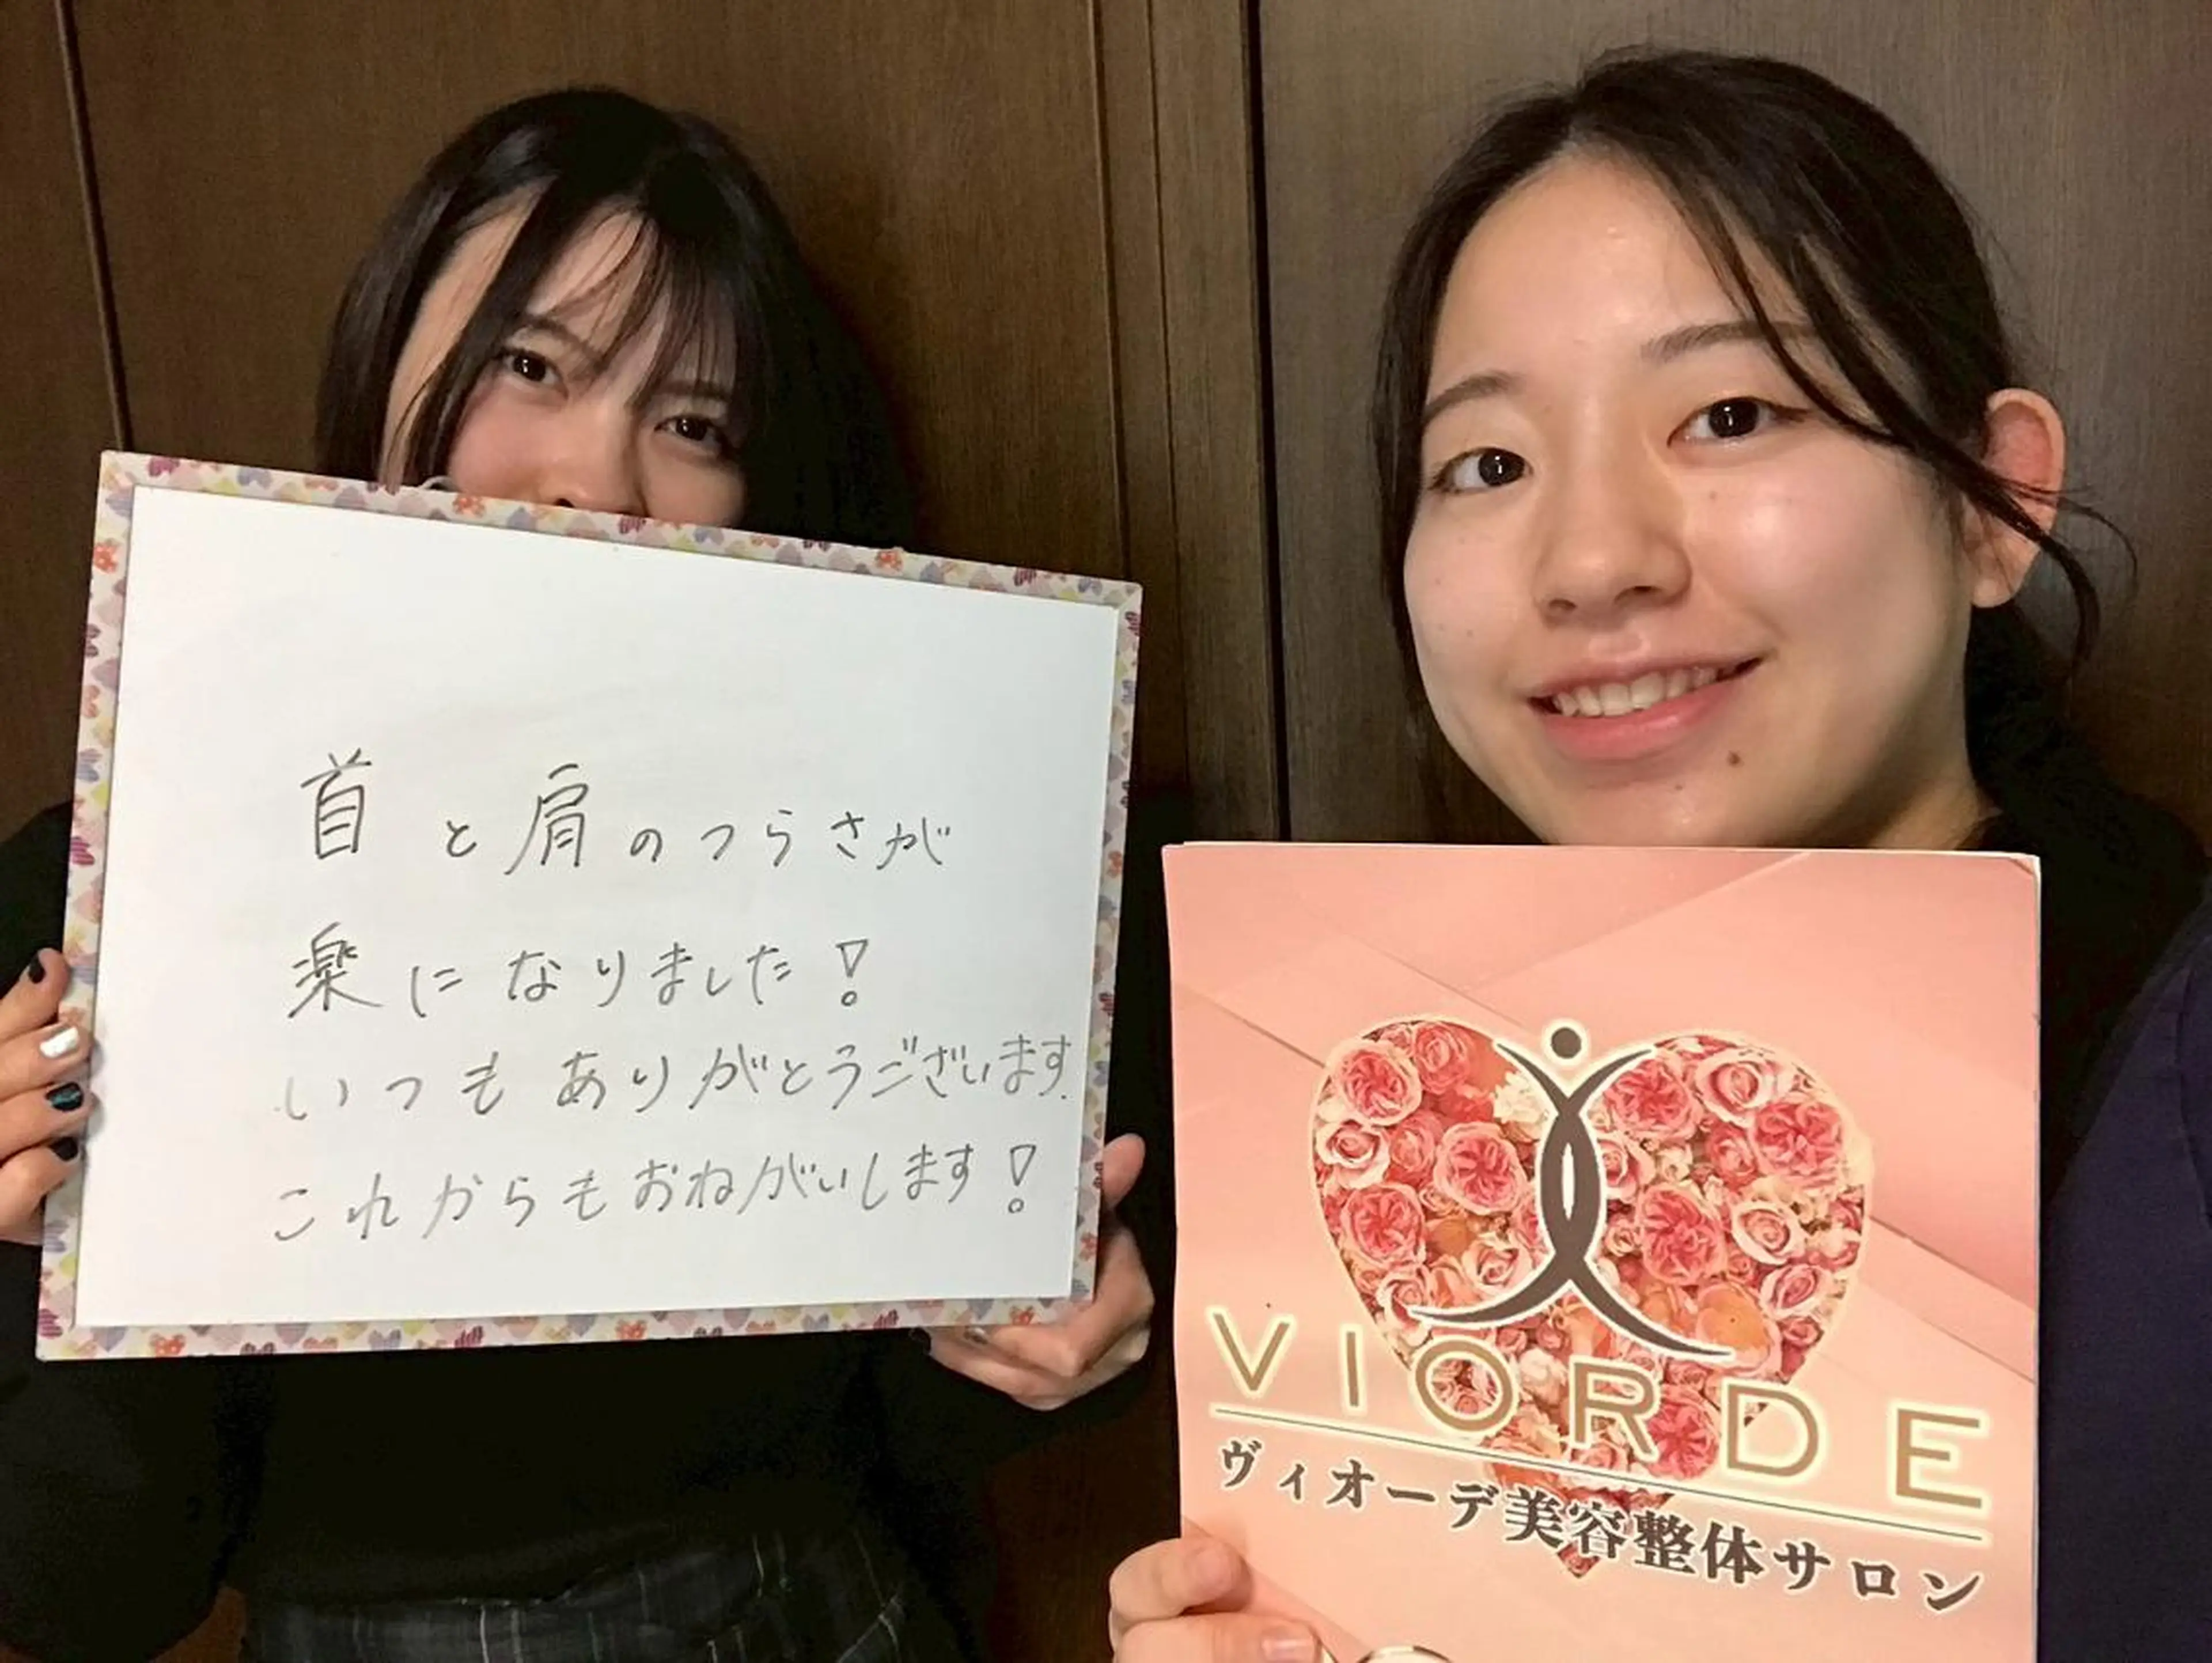 首と肩のつらさが
楽になりました!
いつもありがとうございます.
これからもおねがいします!
VIORDE
ヴィオーデ美容整体サロン